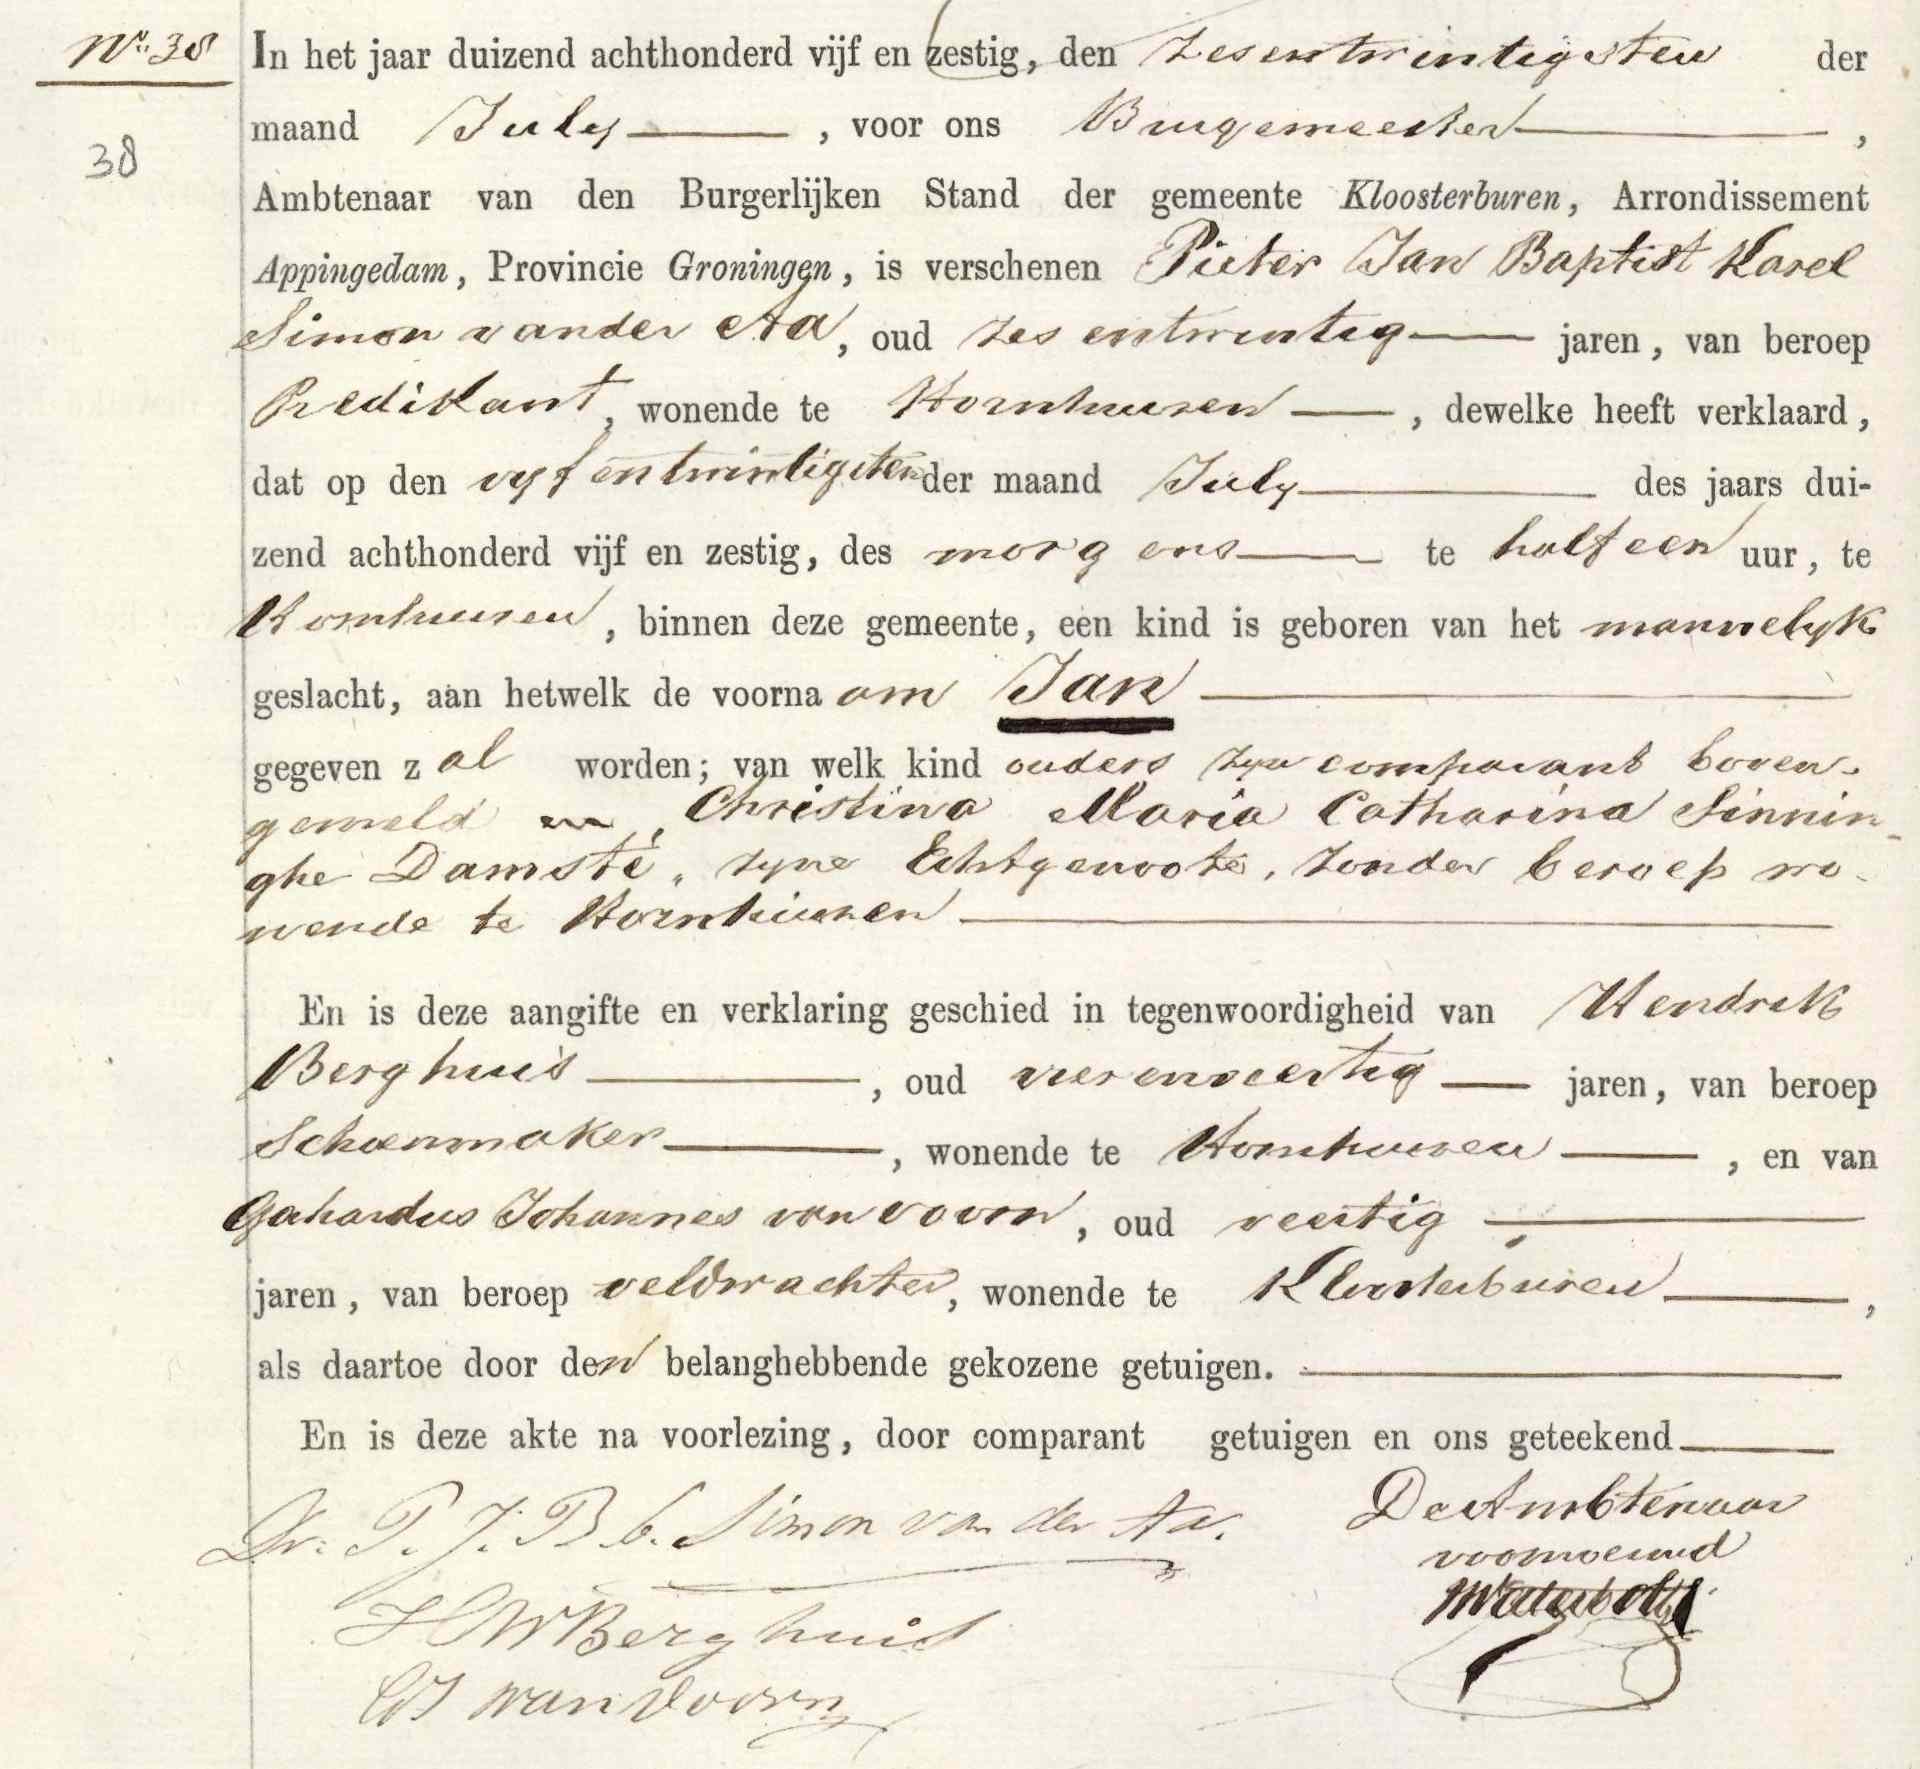 No. 38
38
In het jaar duizend achthonderd vijf en zestig, den zesentwintigsten der
maand July, voor ons Burgemeester,
Ambtenaar van den Burgerlijken Stand der gemeente Kloosterburen, Arrondissement
Appingedam, Provincie Groningen, is verschenen Pieter Jan Baptist Karel
Simon van der Aa, oud zes entwintig jaren, van beroep
Predikant, wonende te Hornhuizen, dewelke heeft verklaard,
dat op den vyf entwintigsten der maand July des jaars dui-
zend achthonderd vijf en zestig, des morgens te half een uur, te
Hornhuizen, binnen deze gemeente, een kind is geboren van het mannelyk
geslacht, aan hetwelk de voorna am Jan
gegeven zal worden; van welk kind ouders zyn comparant boven-
gemeld en, Christina Maria Catharina Sinnin-
ghe Damsté, zyne Echtgenoote, zonder beroep wo-
nende te Hornhuizen
En is deze aangifte en verklaring geschied in tegenwoordigheid van Hendrik
Berghuis, oud vierenveertig jaren, van beroep
Schoenmaker, wonende te Hornhuizen, en van
Gerhardus Johannes van Voorn, oud veertig
jaren, van beroep veldwachter, wonende te Kloosterburen,
als daartoe door den belanghebbende gekozene getuigen.
En is deze akte na voorlezing, door comparant getuigen en ons geteekend
Dr. P. J. B. C. Simon van der Aa.
De Ambtenaar
voornoemd
H W Berghuis
GJ van Voorn